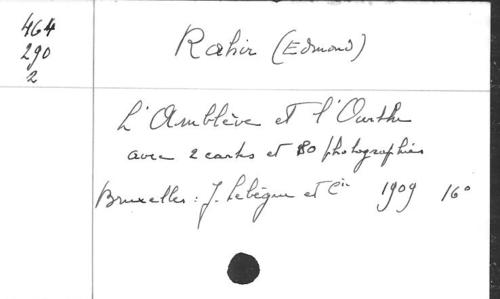 464
290
2
Rahir (Edmond)
L'Amblève et l'Ourthe
avec 2 cartes et 80 photographies
Bruxelles : J. Lebègue et Cie 1909 16°